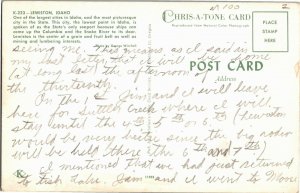 M 100
2
K-233 — LEWISTON, IDAHO
One of the largest cities in Idaho, and the most picturesque
city in the state. This beautiful city, in Idaho, is
spoken of as the State's only seaport because ships can
come up the Columbia and the Snake River to its door.
Lewiston is the center of a grain and fruit belt as well as
mining and lumbering interests.
Photo by George Witchell
CHRIS-A-TONE CARD
PLACE
STAMP
HERE
POST CARD
Address
seeing me. This means as I said in
my last letter, that it will be home
(at long last) the afternoon of
the thirteenth.
In the Jim and I will leave
here for Sutter Creek where I will
stay until the 4th 5th or 6th (Lewiston
would be very hectic since the big rodeo
will be held there the 6th and 7th)
I mentioned that we had just returned
to Fish Lake. Jim and I went to
K